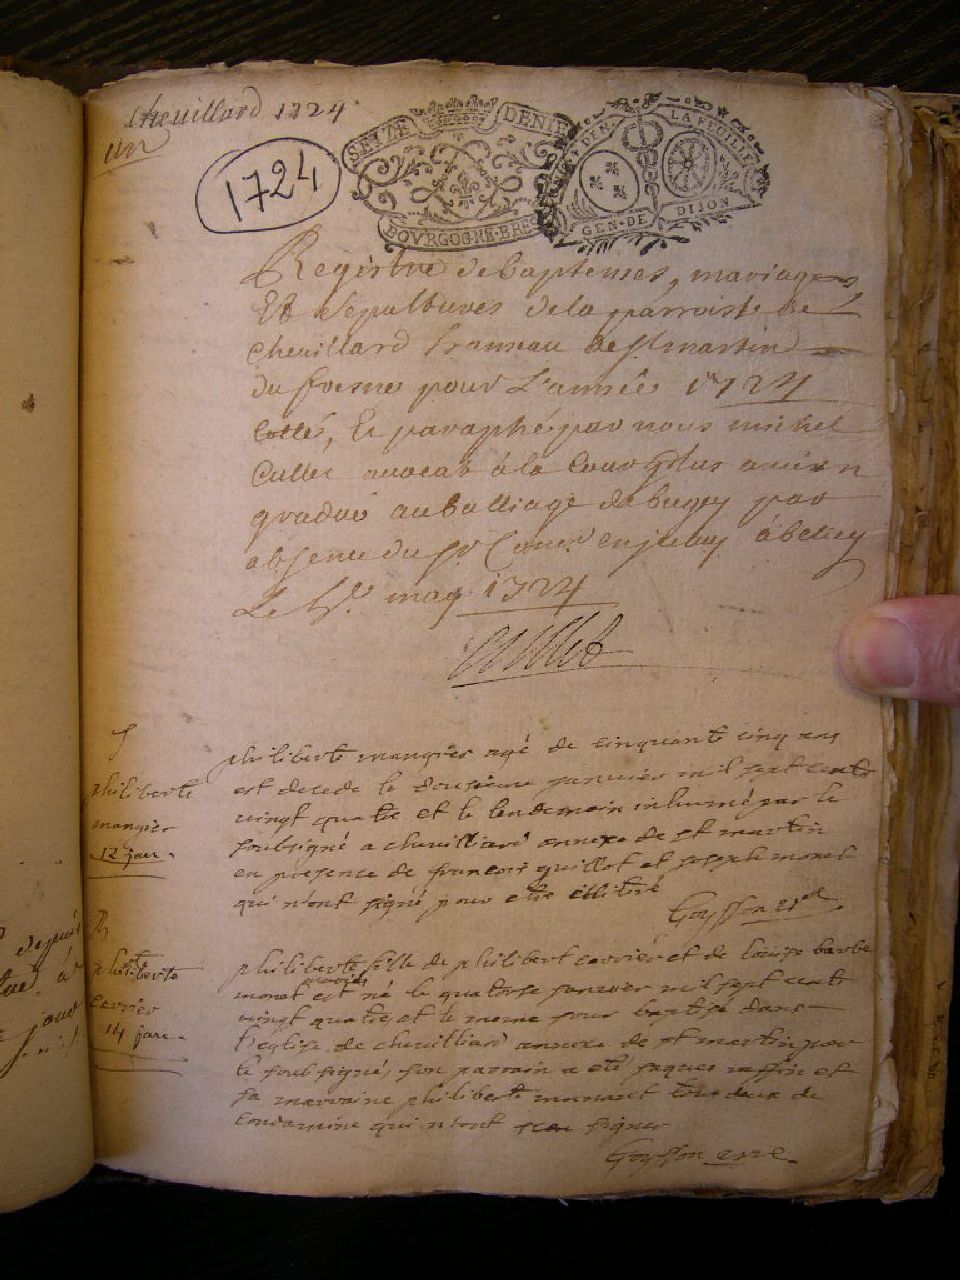 cheuillard 1724
un
1724
SEIZE DENIE
BOVRGOGNE·BRES
DEN LA FEUILLE
GEN·DE DIJON
Registre de baptemes, mariages
Et sepultures de la parroisse de
cheuillard hameau de st martin
du fresne pour L'année 1724
Cotté, Et paraphé par nous michel
Cullet auocat à la Cour plus ancien
gradué au balliage de bugey par
absence du sr à belley
Le may 1724
Cullet
S
philiberte
mangier
12 janr.
philiberte mangier agé de cinquante cinq ans
est decede le dousieme janvier mil sept cents
vingt quatre et le lendemain inhumé par le
soubsigné a cheuilliard annexe de st martin
en presence de francois guillot et joseph monet
qui n'ont signé pour etre illitere
Goysson
B
philiberte
carrier
14 janr.
philiberte fille de philibert carrier et de louise barbe
monet mariés est né le quatorse janvier mil sept cent
vingt quatre et le meme jour baptisé dans
l'eglise de cheuilliard annexe de st martin par
le soubsigné, son parrain a eté jaques raffin et
sa marraine philiberte tous deux de
condamine qui n'ont signer
Goysson
depuis